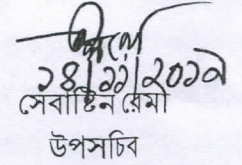 ১৪|১১|২০১৯
সেবাষ্টিন রেমা
উপসচিব